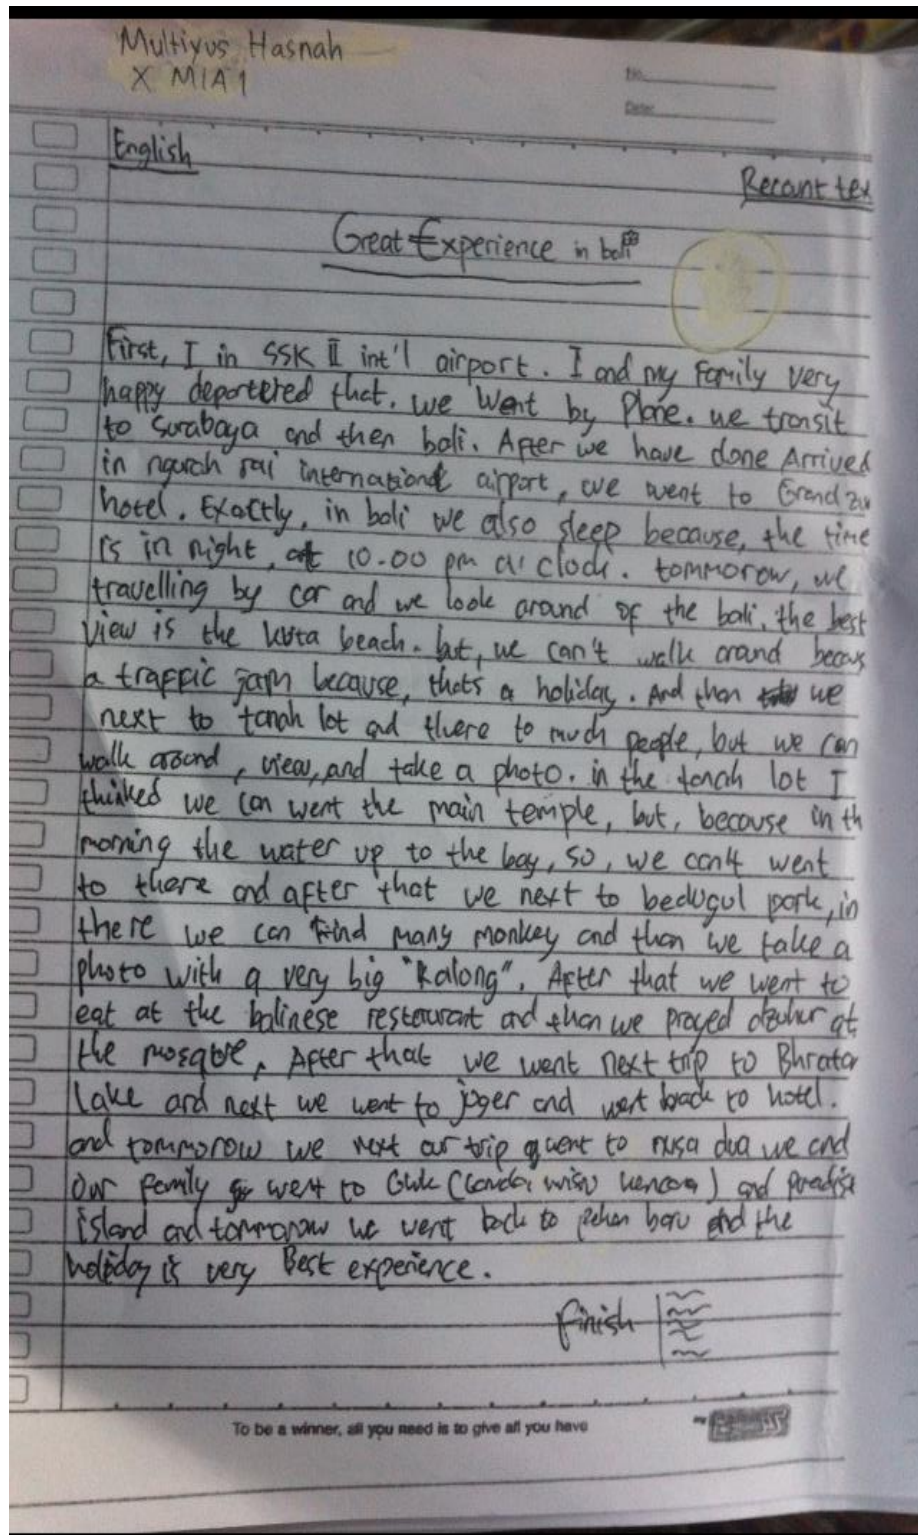 Multiyus Hasnah
X MIA 1
No.
Date:
English
Recount tex
Great Experience in bali
First, I in SSK II int'l airport. I and my Family very
happy deportered that. we Went by Plane. we transit
to Surabaya and then bali. After we have done Arrived
in ngurah rai international airport, we went to Grand zu
hotel. Exactly, in bali we also sleep because, the time
is in night, at 10.00 pm o'clock. tommorow, we
travelling by car and we look around of the bali, the best
view is the kuta beach. but, we can't walk around becaus
a traffic jam because, thats a holiday. And then we
next to tanah lot and there to much people, but we can
walk around, view, and take a photo. in the tanah lot I
thinked we can went the main temple, but, because in th
morning the water up to the bay, so, we can't went
to there and after that we next to bedugul park, in
there we can find many monkey and then we take a
photo with a very big "Kalong". After that we went to
eat at the balinese restaurant and then we prayed dzuhur at
the mosque. After that we went next trip to Bhratan
Lake and next we went to joger and went back to hotel.
and tommorow we next our trip went to nusa dua we and
Our family went to Gwk (Garuda wisnu kencana) and Paradise
island and tommorow we went back to pekan baru and the
holiday is very Best experience.
finish
To be a winner, all you need is to give all you have